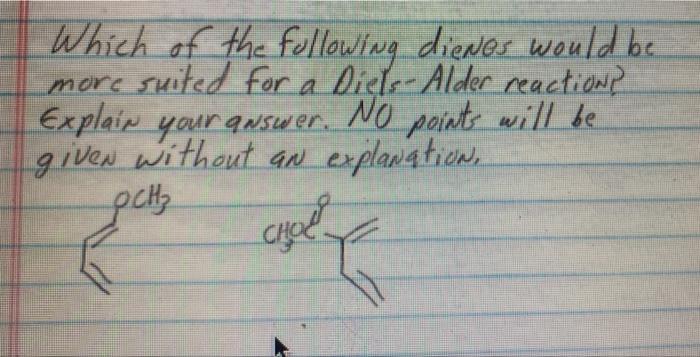 Which of the following dienes would be
more suited for a Diels-Alder reaction?
Explain your answer. NO points will be
given without an explanation.
OCH3
O
CH3OC